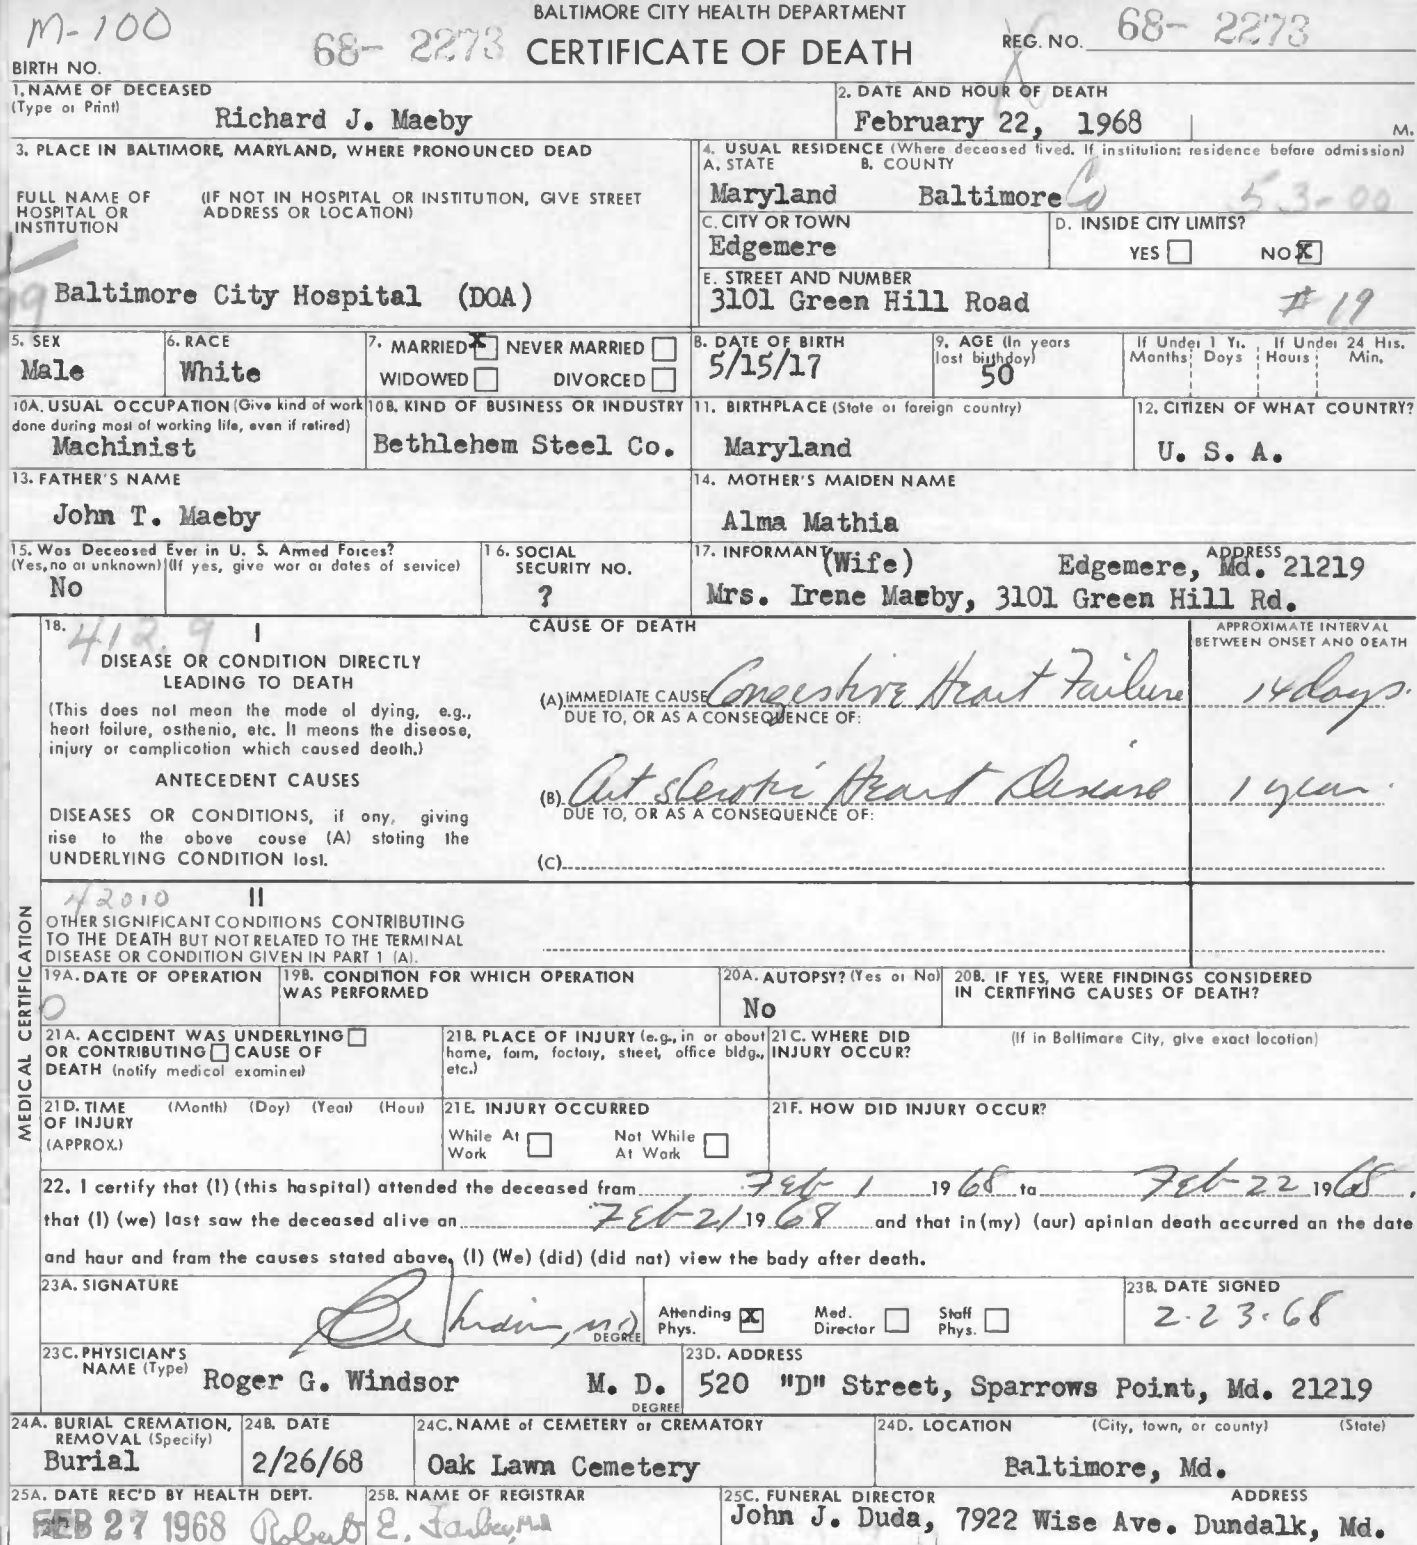 M-100
BALTIMORE CITY HEALTH DEPARTMENT
68- 2273 CERTIFICATE OF DEATH
REG. NO. 68- 2273
BIRTH NO.
1. NAME OF DECEASED
(Type or Print)
Richard J. Maeby
2. DATE AND HOUR OF DEATH
February 22, 1968 M.
3. PLACE IN BALTIMORE, MARYLAND, WHERE PRONOUNCED DEAD
FULL NAME OF HOSPITAL OR INSTITUTION
(IF NOT IN HOSPITAL OR INSTITUTION, GIVE STREET
ADDRESS OR LOCATION)
Baltimore City Hospital (DOA)
4. USUAL RESIDENCE (Where deceased lived. If institution: residence before admission)
A. STATE B. COUNTY
Maryland Baltimore Co 53-00
C. CITY OR TOWN
Edgemere
D. INSIDE CITY LIMITS?
YES NO X
E. STREET AND NUMBER
3101 Green Hill Road # 19
5. SEX
Male
6. RACE
White
7. MARRIED X NEVER MARRIED
WIDOWED DIVORCED
8. DATE OF BIRTH
5/15/17
9. AGE (In years
last birthday)
50
If Under 1 Yr.
Months Days
If Under 24 Hrs.
Hours Min.
10A. USUAL OCCUPATION (Give kind of work
done during most of working life, even if retired)
Machinist
10B. KIND OF BUSINESS OR INDUSTRY
Bethlehem Steel Co.
11. BIRTHPLACE (State or foreign country)
Maryland
12. CITIZEN OF WHAT COUNTRY?
U. S. A.
13. FATHER'S NAME
John T. Maeby
14. MOTHER'S MAIDEN NAME
Alma Mathia
15. Was Deceased Ever in U. S. Armed Forces?
(Yes, no or unknown) (If yes, give war or dates of service)
No
16. SOCIAL
SECURITY NO.
?
17. INFORMANT (Wife) ADDRESS
Edgemere, Md. 21219
Mrs. Irene Maeby, 3101 Green Hill Rd.
18. 412.9 I
CAUSE OF DEATH
APPROXIMATE INTERVAL
BETWEEN ONSET AND DEATH
DISEASE OR CONDITION DIRECTLY
LEADING TO DEATH
(This does not mean the mode of dying, e.g.,
heart failure, asthenia, etc. It means the disease,
injury or complication which caused death.)
(A) IMMEDIATE CAUSE Congestive Heart Failure 14 days.
DUE TO, OR AS A CONSEQUENCE OF:
ANTECEDENT CAUSES
DISEASES OR CONDITIONS, if any, giving
rise to the above cause (A) stating the
UNDERLYING CONDITION last.
(B) Art sclerotic Heart Disease 1 year.
DUE TO, OR AS A CONSEQUENCE OF:
(C)
42010 II
OTHER SIGNIFICANT CONDITIONS CONTRIBUTING
TO THE DEATH BUT NOT RELATED TO THE TERMINAL
DISEASE OR CONDITION GIVEN IN PART 1 (A).
MEDICAL CERTIFICATION
19A. DATE OF OPERATION
0
19B. CONDITION FOR WHICH OPERATION
WAS PERFORMED
20A. AUTOPSY? (Yes or No)
No
20B. IF YES, WERE FINDINGS CONSIDERED
IN CERTIFYING CAUSES OF DEATH?
21A. ACCIDENT WAS UNDERLYING
OR CONTRIBUTING CAUSE OF
DEATH (notify medical examiner)
21B. PLACE OF INJURY (e.g., in or about
home, farm, factory, street, office bldg.,
etc.)
21C. WHERE DID
INJURY OCCUR?
(If in Baltimore City, give exact location)
21D. TIME (Month) (Day) (Year) (Hour)
OF INJURY
(APPROX.)
21E. INJURY OCCURRED
While At Work Not While At Work
21F. HOW DID INJURY OCCUR?
22. I certify that (I) (this hospital) attended the deceased from Feb 1 1968 to Feb-22 1968,
that (I) (we) last saw the deceased alive on Feb-21 1968 and that in (my) (our) opinion death occurred on the date
and hour and from the causes stated above, (I) (We) (did) (did not) view the body after death.
23A. SIGNATURE
DEGREE
Attending Phys. X Med. Director Staff Phys.
23B. DATE SIGNED
2-23-68
23C. PHYSICIAN'S
NAME (Type) Roger G. Windsor M. D.
DEGREE
23D. ADDRESS
520 "D" Street, Sparrows Point, Md. 21219
24A. BURIAL CREMATION,
REMOVAL (Specify)
Burial
24B. DATE
2/26/68
24C. NAME of CEMETERY or CREMATORY
Oak Lawn Cemetery
24D. LOCATION (City, town, or county) (State)
Baltimore, Md.
25A. DATE REC'D BY HEALTH DEPT.
FEB 27 1968
25B. NAME OF REGISTRAR
Robert E. Farber, M.D.
25C. FUNERAL DIRECTOR ADDRESS
John J. Duda, 7922 Wise Ave. Dundalk, Md.